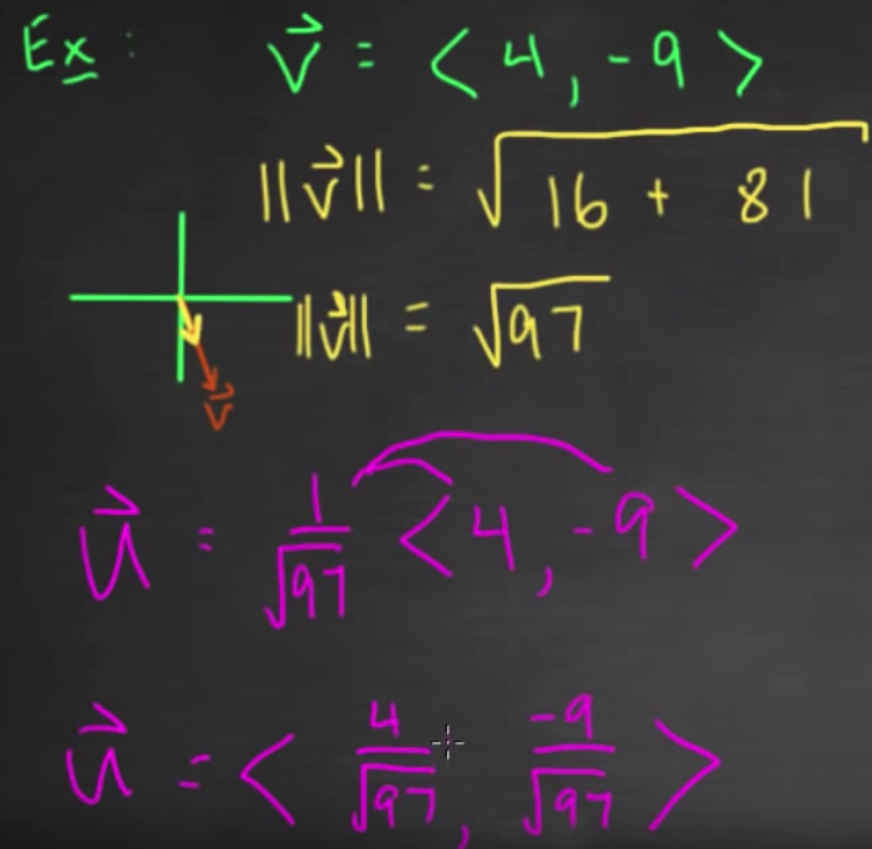 Ex: v⃗ = < 4, -9 >
||v⃗|| = √(16 + 81)
||v⃗|| = √97
v⃗
u⃗ = 1/√97 < 4, -9 >
u⃗ = < 4/√97, -9/√97 >